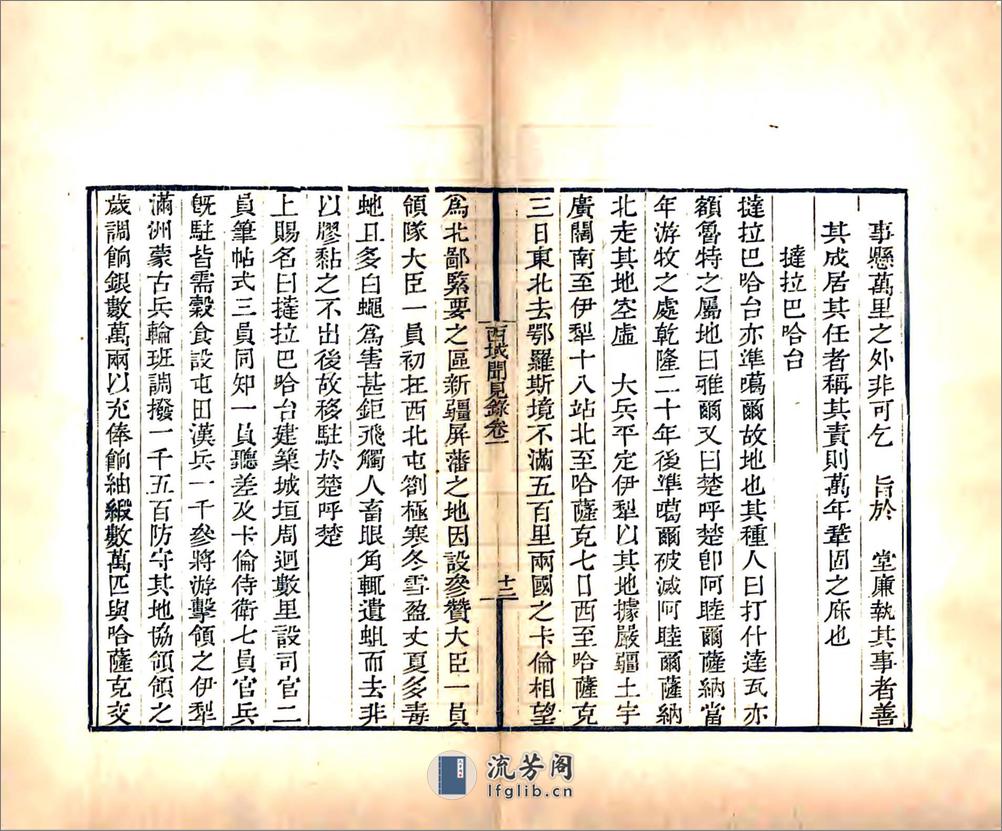 事懸萬里之外非可乞　旨於　堂廉執其事者善
其成居其任者稱其責則萬年鞏固之庥也
㺚拉巴哈台
㺚拉巴哈台亦準噶爾故地也其種人曰打什達瓦亦
額魯特之屬地曰雅爾又曰楚呼楚卽阿睦爾薩納當
年游牧之處乾隆二十年後準噶爾破滅阿睦爾薩納
北走其地空虛　大兵平定伊犁以其地據嚴疆土宇
廣闊南至伊犁十八站北至哈薩克七日西至哈薩克
三日東北去鄂羅斯境不滿五百里兩國之卡倫相望
西域聞見錄卷一
十二
爲北鄙緊要之區新疆屏藩之地因設參贊大臣一員
領隊大臣一員初在西北屯劄極寒冬雪盈丈夏多毒
虵且多白蠅爲害甚鉅飛觸人畜眼角輒遺蛆而去非
以膠黏之不出後故移駐於楚呼楚
上賜名曰㺚拉巴哈台建築城垣周迴數里設司官二
員筆帖式三員同知一員聽差及卡倫侍衛七員官兵
旣駐皆需穀食設屯田漢兵一千參將游擊領之伊犁
滿洲蒙古兵輪班調撥一千五百防守其地協領領之
歲調餉銀數萬兩以充俸餉紬緞數萬匹與哈薩克交
流芳阁
lfglib.cn